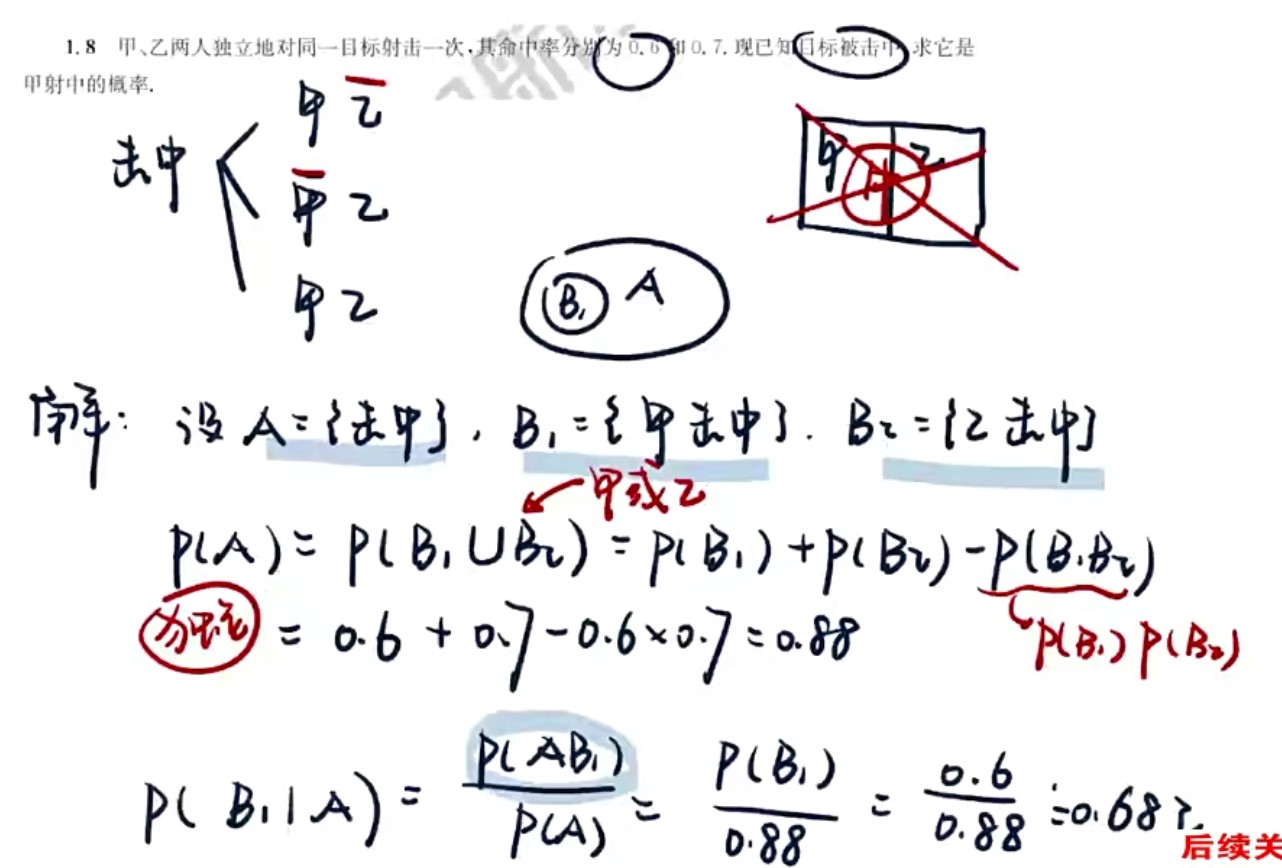 1.8 甲、乙两人独立地对同一目标射击一次,其命中率分别为 0.6 和 0.7. 现已知目标被击中,求它是
甲射中的概率.
甲 乙̅
击中
甲̅ 乙
甲 乙
甲 乙
A
B₁ A
解: 设 A={击中}, B₁={甲击中}. B₂={乙击中}
甲或乙
P(A)= P(B₁∪B₂) = P(B₁)+P(B₂)-P(B₁B₂)
= 0.6 + 0.7-0.6×0.7=0.88
P(B₁) P(B₂)
P(B₁|A) = P(AB₁)/P(A) = P(B₁)/0.88 = 0.6/0.88 ≐0.682.
后续关